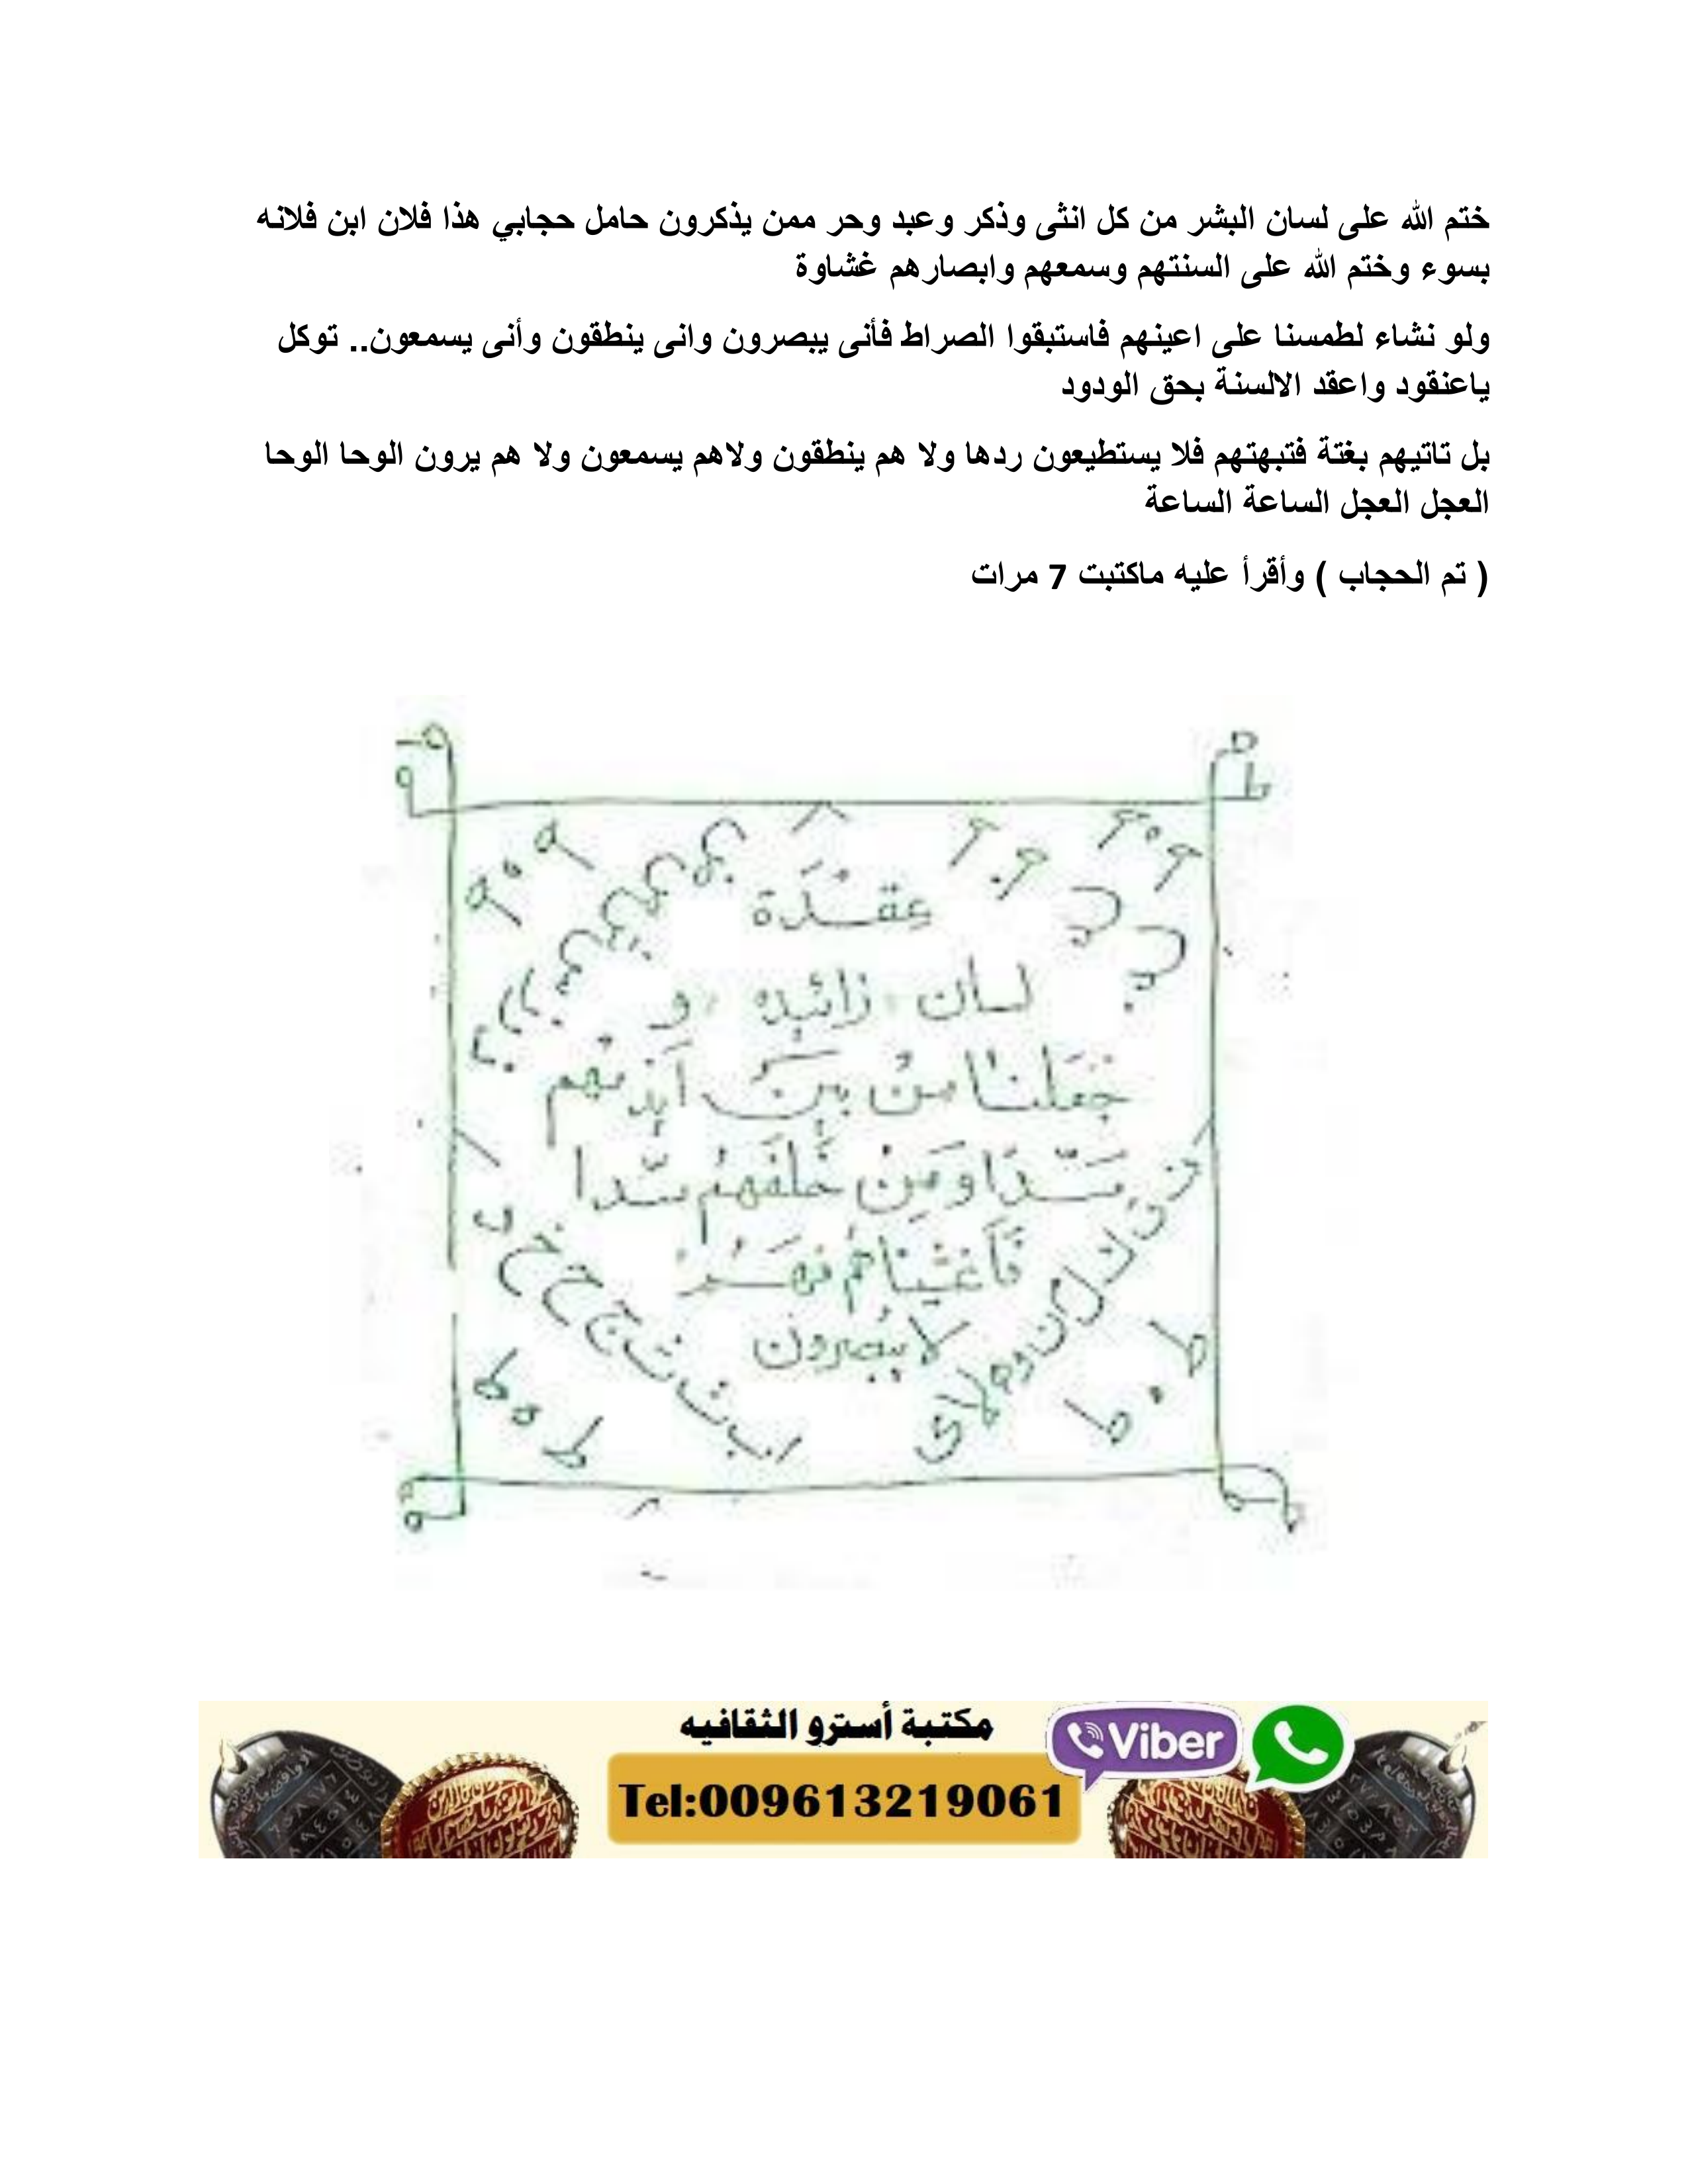 ختم الله على لسان البشر من كل انثى وذكر وعبد وحر ممن يذكرون حامل حجابي هذا فلان ابن فلانه
بسوء وختم الله على السنتهم وسمعهم وابصارهم غشاوة
ولو نشاء لطمسنا على اعينهم فاستبقوا الصراط فأنى يبصرون وانى ينطقون وأنى يسمعون.. توكل
ياعنقود واعقد الالسنة بحق الودود
بل تاتيهم بغتة فتبهتهم فلا يستطيعون ردها ولا هم ينطقون ولاهم يسمعون ولا هم يرون الوحا الوحا
العجل العجل الساعة الساعة
( تم الحجاب ) وأقرأ عليه ماكتبت 7 مرات
عقدة
لسان و
جعلنا من بين أيديهم
سدا ومن خلفهم سدا
فأغشيناهم فهم
لا يبصرون
مكتبة أسترو الثقافيه
Viber
Tel:009613219061